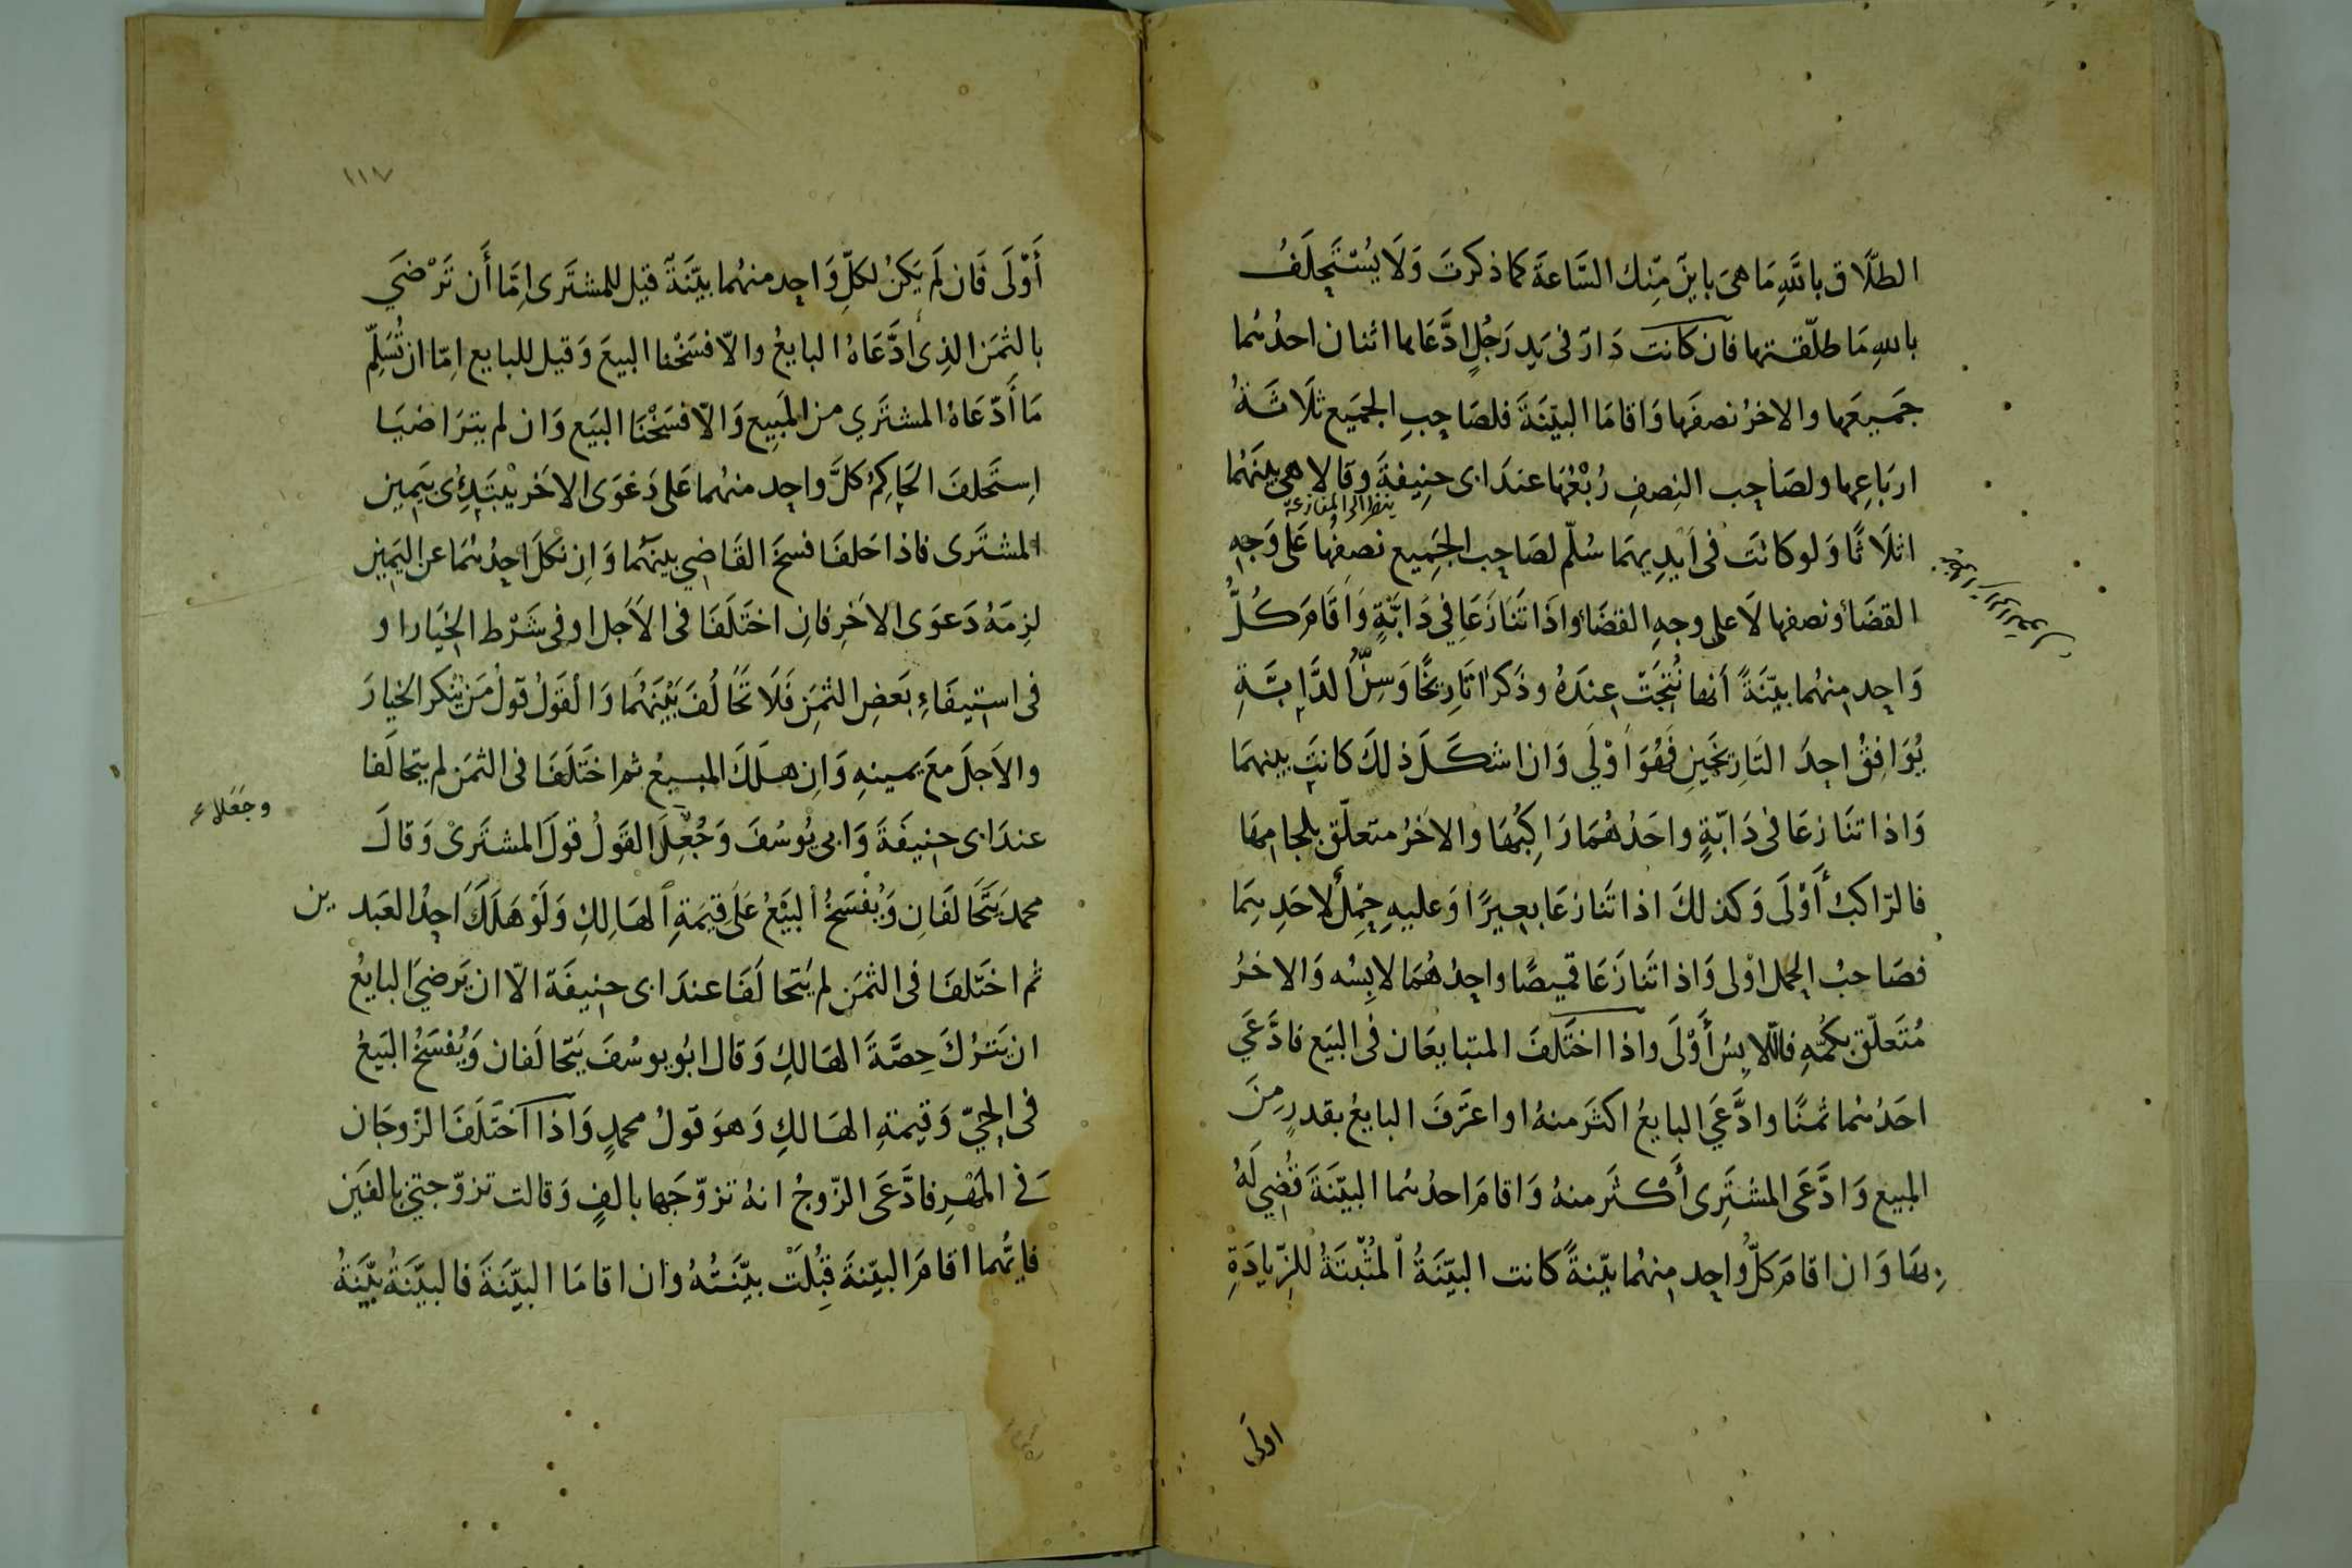 الطلَاق باللهِ مَا هىَ باينَ مِّنك السَّاعةَ كما ذكرتَ وَلَا يُسْتَحِلَفُ
باللهِ مَا طلّقتها فان كانت دَارٌ فى يَدِ رَجُلٍ ادَّعَاها اثنان احدُهما
جَميعَها والاخرُ نصفَها وَاقامَا البيّنَةَ فلصَاحِبِ الجَميَع ثلَاثَةُ
اربَاعِها ولصَاحِب النِصفِ رُبْعُهَا عندَ ابى حنِيفةَ وقالا هى بينَهُما
ينظر الى المنازعة
اثلَاثًا وَلو كانتَ فى اَيْدِيهمَا سُلّم لصَاحِب الجَمِيع نصفُها عَلى وَجهِ
القضَاءِ ونصفها لَا على وجهِ القضَاءِ واذَا تَنَازَعَا فِي دَابَّةٍ وَاَقَامَ كُلُّ
وَاحِدٍ مِنهُما بيّنَةً اَنها نُتِجَتْ عِندَهُ وذَكرَا تَارِيخًا وَسِنُّ الدَّابَّةِ
يُوَافِقُ احِدَ التَارِيخَينِ فَهُوَ اَوْلَي وَان اشكَلَ ذلكَ كَانتَ بينهمَا
وَاذا تنَازعَا فى دَابّةٍ واحَدُهُمَا رَاكِبُهَا والاخرُ متعلّق بلجامِهَا
فالرّاكبُ أَوْلَى وَكذلكَ اذا تَنازعَا بعِيرًا وَعليهِ حِمْلٌ لاحَدِهِمَا
فصَاحبُ الحِمل اوْلى وَاذا تَنازَعَا قميصًا واحِدُهُمَا لابِسُه وَالاخرُ
مُتَعلّق بكمّهِ فاللّابِسُ أَوْلَى واذا اختَلَفَ المتبايعَان فى البَيع فادَّعَي
احَدُهُما ثمنًا وادَّعَي البايعُ اكثَرَ منهُ او اعتَرَفَ البايعُ بقدرٍ مِنَ
المبيع وَادَّعَى المشتَرِى أَكْثَر منهُ وَاقامَ احدُهُما البيّنَةَ قُضِي لَهُ
بِهَا وَان اقامَ كلُّ واحِدٍ مِنهُما بيّنةً كانت البيّنَةُ المُثْبِتَةُ للزِّيادَةِ
اولَى
١١٧
أَوْلَى فَان لَم يَكنُ لكلِّ وَاحِدٍ منهُما بيّنَةً قيل للمشتَرى اِمَّا أَن تَرْضيَ
بالثمَن الذِى ادَّعَاهُ البايعُ والّا فسَخْنا البيعَ وَقيل للبايع اِمّا ان تُسَلِّم
مَا أَدّعَاهُ المشتَري من المَبِيع وَالّا فسَخْنَا البيَع وَان لم يتَراضيَا
اِستَحلفَ الحَاكِمُ كلَّ واحِدٍ منهُما عَلى دَعْوَى الاخَر يبْتَدِئ بيَمِين
المشتَرى فاذا حَلفَا فسخَ القَاضِي بينَهُما وَاِن نَكَلَ احِدُهُمَا عن اليَمِين
لزِمَهُ دَعوَى الاخَرِ فانِ اختَلَفَا فى الاَجَل او فى شَرْط الخِيَار او
فى استِيفَاءِ بَعضِ الثمَنِ فَلَا تحَالُفَ بَيْنَهُمَا وَالقَوْلُ قولُ مَن يُنكر الخيارَ
والاَجلَ معَ يمينهِ وَاِن هلَكَ المبيعُ ثم اختَلَفَا فى الثمَن لم يتحالَفا
عندَ ابى حنِيفَةَ وَابى يُوسُفَ وَجُعِلَ القَولُ قولَ المشترَىْ وَقالَ
وجَعَلاء
محمد يَتَحَالَفَانِ وَيُفسَخُ البَيْعُ عَلَى قيمَةِ الهَالِكِ وَلَوْ هَلَكَ اَحِدُ العَبدين
ثم اختَلفَا فى الثمَن لم يَتَحالَفَا عندَ ابى حنِيفَة الّا ان يَرضيَ البايعُ
ان يَترُكَ حِصَّةَ الهَالكِ وَقال ابُو يوسُفَ يَتَحالَفان وَيُفسَخُ البَيعُ
فى الحِيّ وَقيمةِ الهَالكِ وَهوَ قولُ محمدٍ وَاذا اختَلَفَا الزّوجَان
فى المَهْرِ فادَّعَى الزّوجُ انهُ تزوّجَها بالفٍ وَقالت تزوّجتني بالفَين
فايهُما اقامَ البيّنةَ قبُلَتْ بيّنَتُهُ وان اقامَا البيّنَةَ فالبيَّنَةُ بيّنَةُ